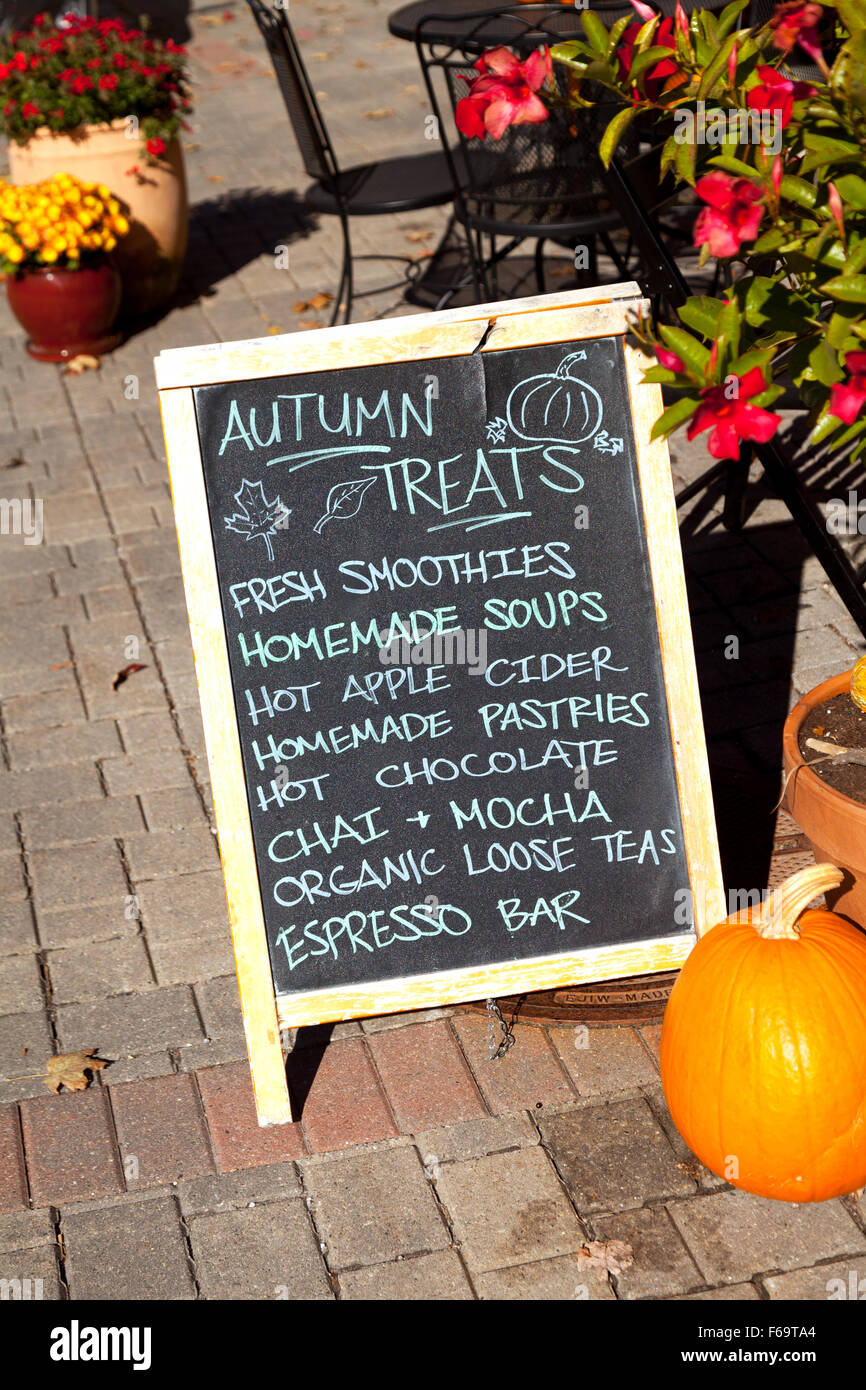 AUTUMN
TREATS
FRESH SMOOTHIES
HOMEMADE SOUPS
HOT APPLE CIDER
HOMEMADE PASTRIES
HOT CHOCOLATE
CHAI + MOCHA
ORGANIC LOOSE TEAS
ESPRESSO BAR
EJIW-MADE
alamy
alamy stock photo
F69TA4
www.alamy.com